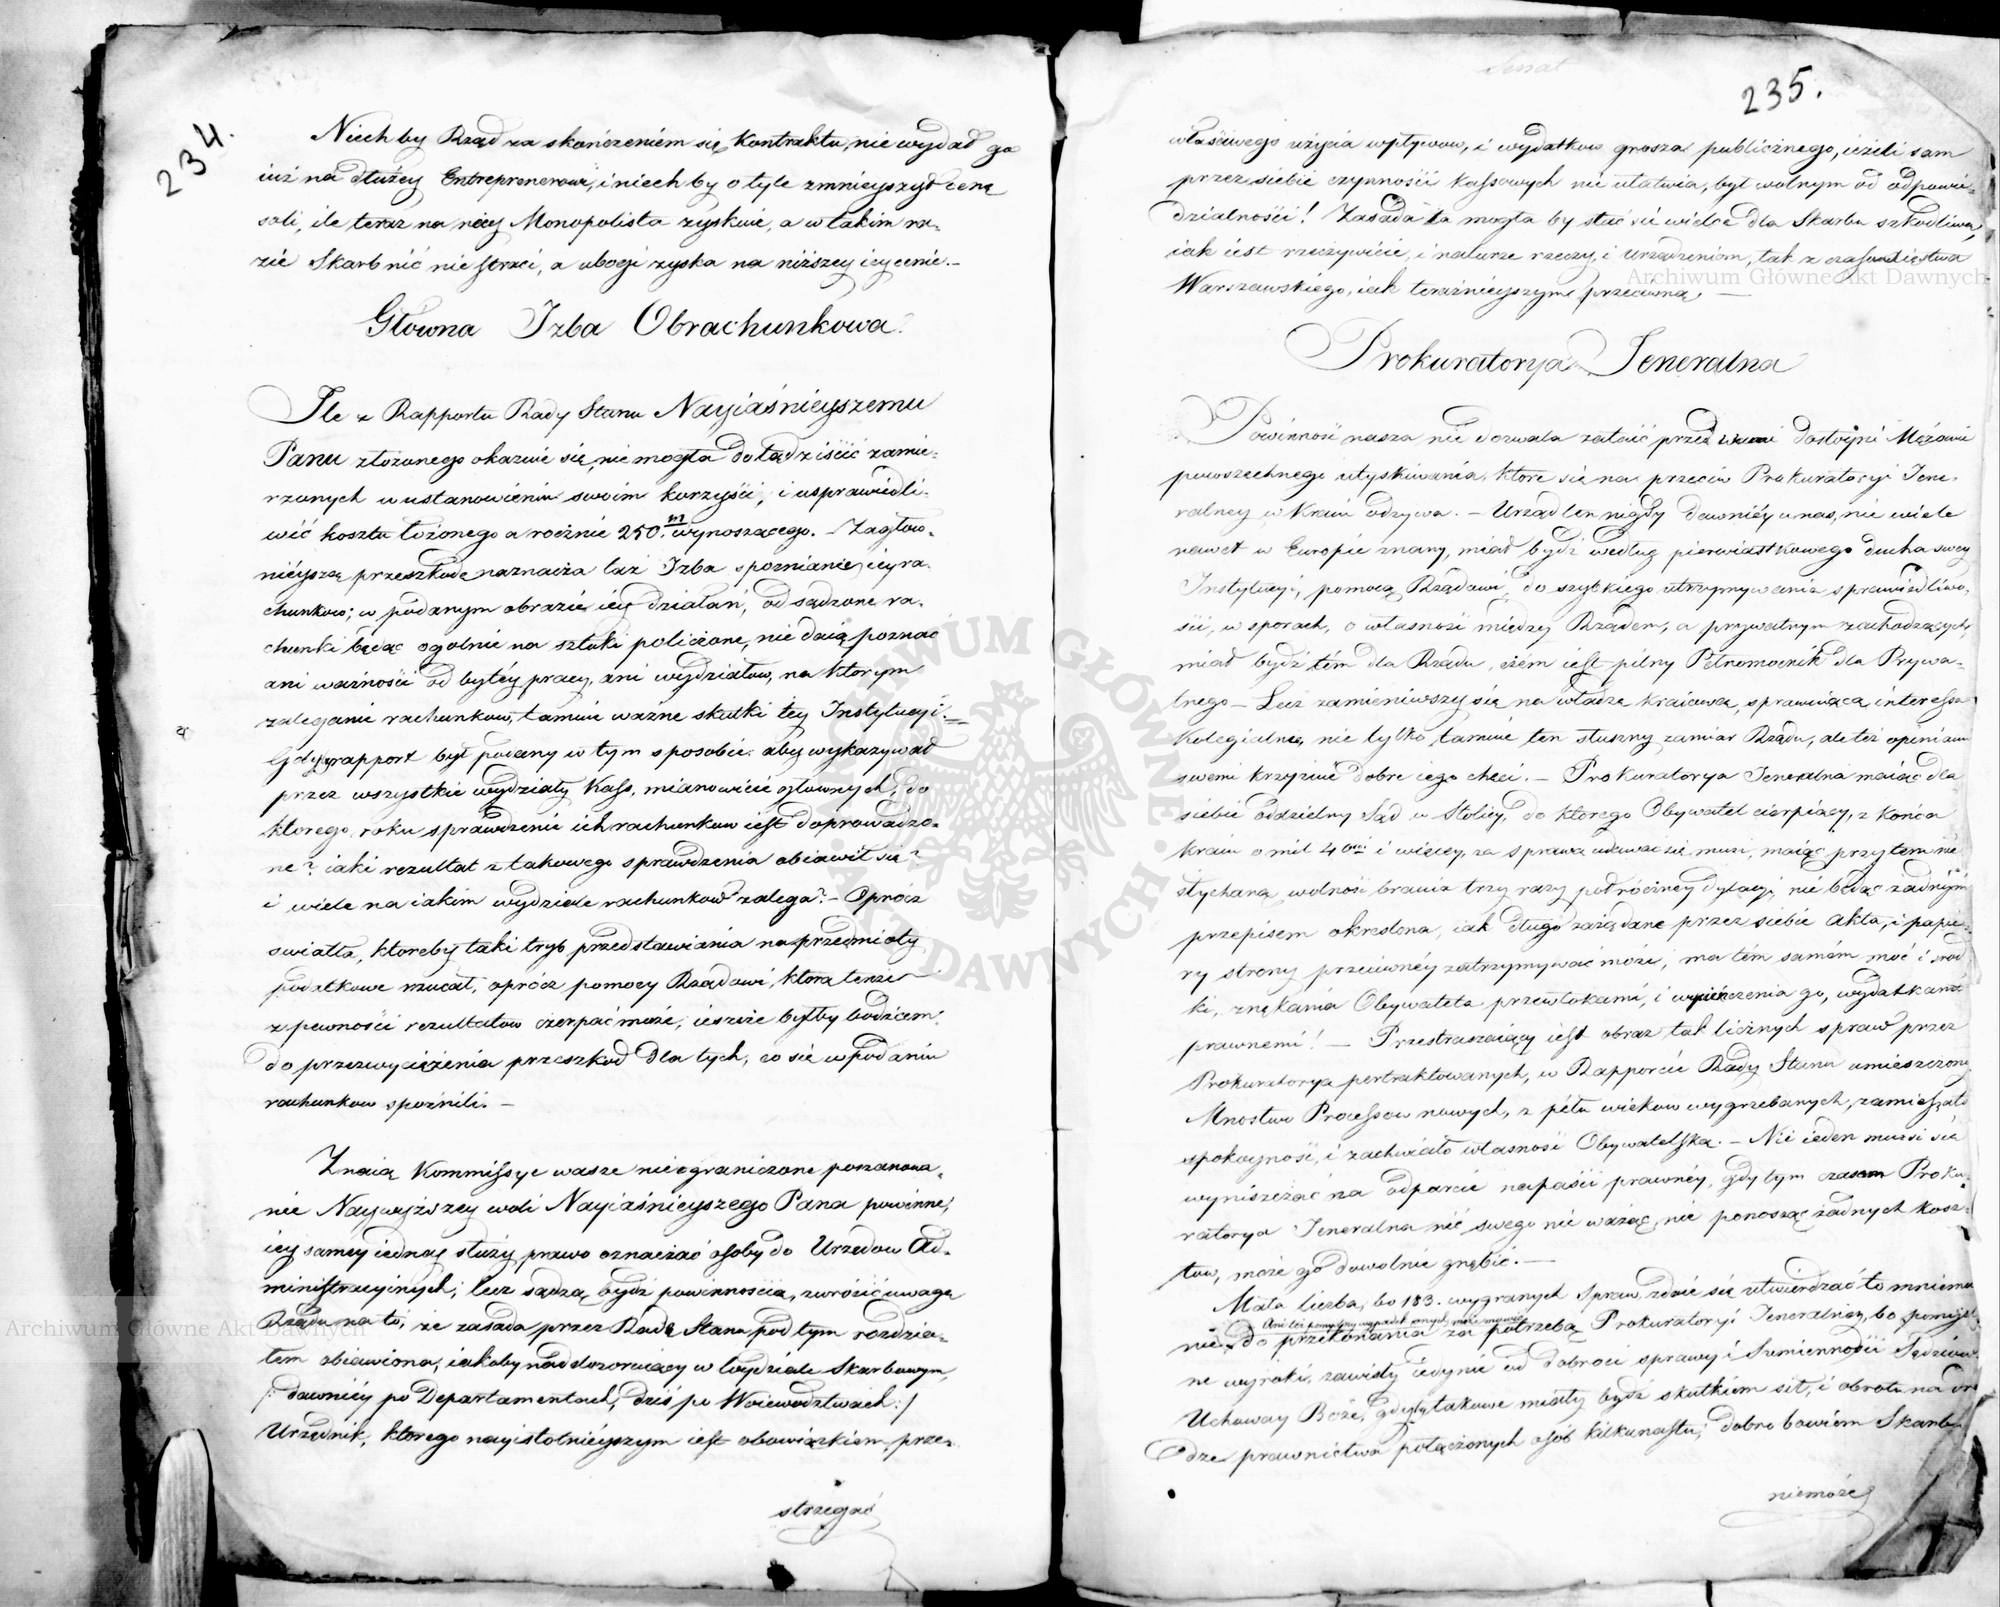 234.
Niech by Rząd za skończeniem się Kontraktu, nie wydał go
iuż na dłużey Entreprenerowi, i niech by o tyle zmnieyszył cenę
soli, ile teraz na niey Monopolista zyskuie, a w takim ra-
zie Skarb nic nie straci, a ubogi zyska na niższey iey cenie. –
Główna Izba Obrachunkowa.
Ile z Rapportu Rady Stanu Nayiaśnieyszemu
Panu złożonego okazuie się, nie mogła dotąd ziścić zamie-
rzonych w ustanowieniu swoim korzyści, i usprawiedli-
wić kosztu łożonego a rocznie 250.m wynoszącego. – Zagłow-
nieyszą przeszkodę naznacza taż Izba spoznianie iey ra-
chunkow; w podanym obrazie iey działań, odsądzone ra-
chunki będąc ogolnie na sztuki policzone, nie daią poznać
ani ważności odbytéy pracy, ani wydziałow, na ktorym
zaleganie rachunkow, tamuie ważne skutki tey Instytucyi. –
Gdyby rapport był podany w tym sposobie: aby wykazywał
przez wszystkie wydziały Kass, mianowicie głownych, do
ktorego roku sprawdzenie ich rachunkow iest doprowadzo-
ne? iaki rezultat z takowego sprawdzenia obiawił się?
i wiele na iakim wydziele rachunkow zalega? – Oprócz
swiatła, ktoreby taki tryb przedstawiania na przedmioty
podatkowe rzucał, oprócz pomocy Rządowi, ktorą tenże
z pewności rezultatow czerpać może, ieszcze byłby bodźcem
do przezwyciężenia przeszkod dla tych, co się w podaniu
rachunkow spoźnili. –
Znaią Kommissye wasze nieograniczone poszanowa-
nie Naywyższey woli Nayiaśnieyszego Pana powinne,
iey samey iedney służy prawo oznaczać osoby do Urzędow Ad-
ministracyinych; lecz sądzą bydź powinnością, zwrócić uwagę
Rządu na to, że zasada przez Radę Stanu pod tym rozdzia-
łem obiawiona, iakoby naddozoruiący w Wydziale Skarbowym,
/: dawniéy po Departamentach, dziś po Woiewództwach :/
Urzędnik, ktorego nayistotnieyszym iest obowiązkiem, prze-
strzegać
Senat
235.
właściwego użycia wpływow, i wydatkow grosza publicznego, ieżeli sam
przez siebie czynności kassowych nie ułatwia, był wolnym od odpowie-
dzialności! Zasada ta mogła by stać się wielce dla Skarbu szkodliwa,
iak iest rzeczywiście, i naturze rzeczy, i urządzeniom, tak z czasu xięstwa
Warszawskiego, iak teraźnieyszym przeciwną. –
Prokuratorya Jeneralna
Powinność nasza nie dozwala zataić przed wami dostoyni Mężowie
powszechnego utyskiwania, ktore się na przeciw Prokuratoryi Jene-
ralney w Kraiu odzywa. – Urząd ten nigdy dawniéy u nas, nie wiele
nawet w Europie znany, miał bydź według pierwiastkowego ducha swey
Instytucyi, pomocą Rządowi, do szybkiego utrzymywania sprawiedliwo-
ści, w sporach, o własność między Rządem, a prywatnym zachodzących,
miał bydź tém dla Rządu, czem iest pilny Pełnomocnik dla Prywa-
tnego – Lecz zamieniwszy się na władzę kraiową, sprawuiącą interessa
Kolegialnie, nie tylko tamuie ten słuszny zamiar Rządu, ale też opiniami
swemi krzyżuie dobre iego chęci. – Prokuratorya Jeneralna maiąc dla
siebie oddzielny Sąd w Stolicy, do ktorego Obywatel cierpiący, z końca
Kraiu o mil 40ści i więcey, za sprawą udawać się musi, maiąc przytem nie-
słychaną wolność brania trzy razy pół róczney dylacyi, nie będąc żadnym
przepisem określona, iak długo zażądane przez siebie Akta, i papie-
ry strony przeciwnéy zatrzymywać może, ma tém samém moc i środ-
ki, znękania Obywatela przewłokami, i wycieńczenia go, wydatkami
prawnemi! – Przestraszaiący iest obraz tak licznych spraw przez
Prokuratorya pertraktowanych, w Rapporcie Rady Stanu umieszczony.
Mnóstwo Processow nowych, z pyłu wiekow wygrzebanych, zamieszało
spokoyność, i zachwiało własność Obywatelską. – Nie ieden musi się
wyniszczać na odparcie napaści prawnéy, gdy tym czasem Proku-
ratorya Jeneralna nic swego nie ważąc, nie ponosząc żadnych kosz-
tow, może go dowolnie gnębić. –
Mała liczba, bo 183. wygranych Spraw, zdaie się utwierdzać to mniema-
nie. Ani też pomyślny wypadek onych, może nawieść
do przekonania za potrzebą Prokuratoryi Jeneralney, bo pomyśl-
ne wyroki, zawisły iedynie od dobroci sprawy i Sumienności Sędziow.
Uchoway Boże, gdyby takowe miały bydź skutkiem sił, i obrotu na dro-
dze prawnictwa połączonych osób kilkunastu; dobro bowiem Skarbu
niemoże